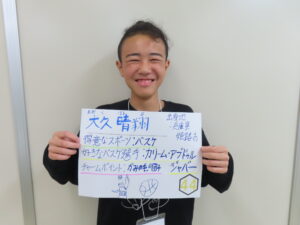 大久 晴翔
出身地
兵庫県
姫路市
得意なスポーツ:バスケ
好きなバスケ選手:カリーム・アブドゥル
ジャバー
チャームポイント:
44